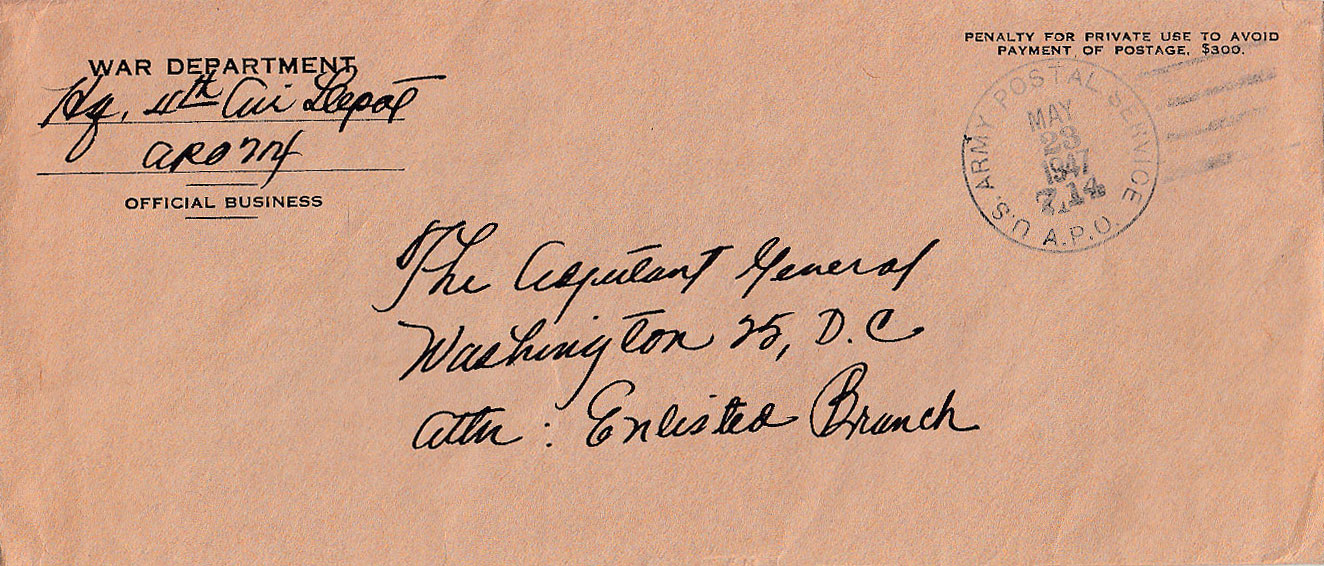 WAR DEPARTMENT
Hq, 4th Air Depot
APO 714
OFFICIAL BUSINESS
PENALTY FOR PRIVATE USE TO AVOID
PAYMENT OF POSTAGE, $300.
U.S. ARMY POSTAL SERVICE
MAY
23
1947
714
A.P.O.
The Adjutant General
Washington 25, D.C
Attn : Enlisted Branch